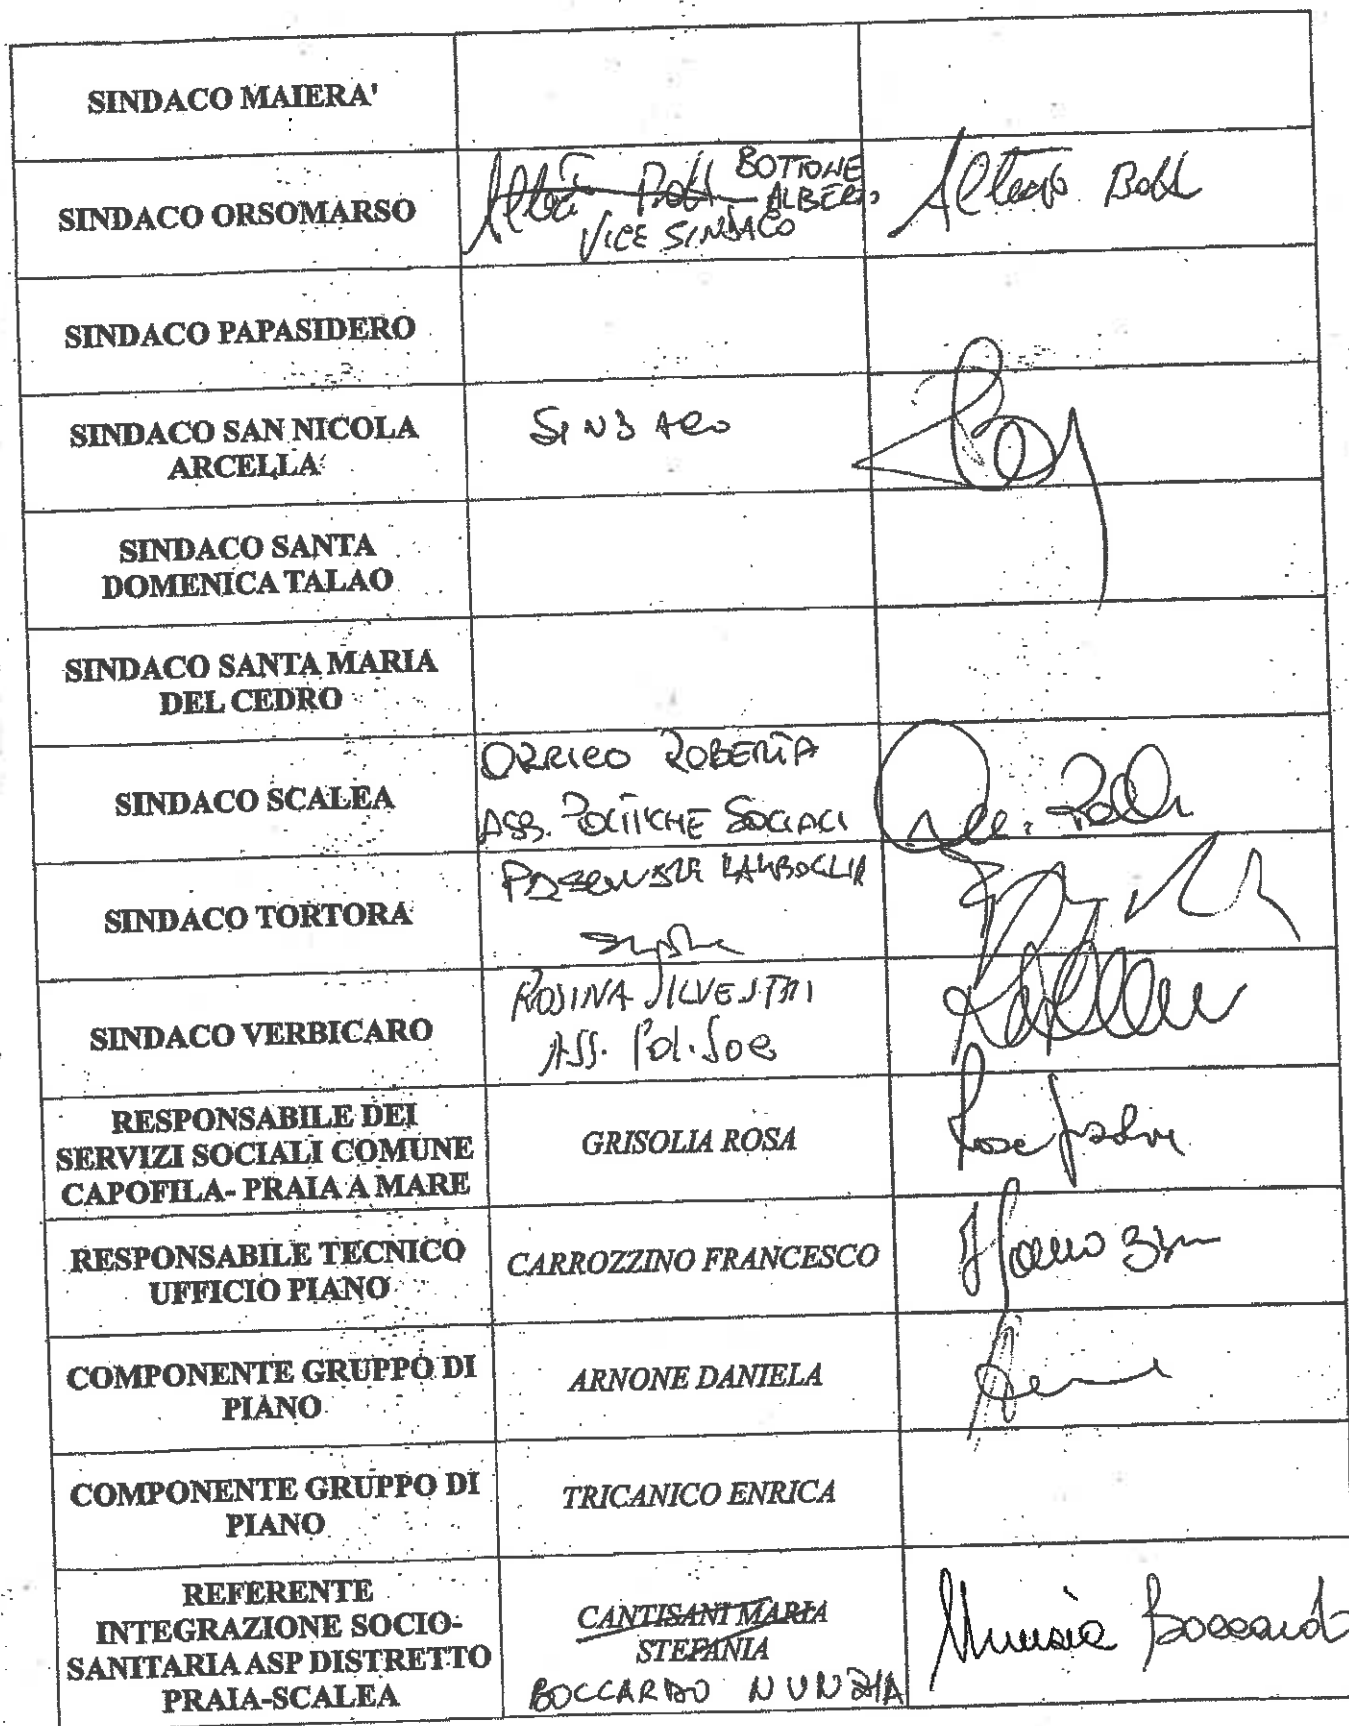 SINDACO MAIERA'
SINDACO ORSOMARSO
BOTTONE
ALBERTO
VICE SINDACO
SINDACO PAPASIDERO
SINDACO SAN NICOLA
ARCELLA
SINDACO
SINDACO SANTA
DOMENICA TALAO
SINDACO SANTA MARIA
DEL CEDRO
SINDACO SCALEA
ORRICO ROBERTA
ASS. POLITICHE SOCIALI
SINDACO TORTORA
LAMBOGLIA
SINDACO VERBICARO
ROSINA SILVESTRI
ASS. Pol. Soc
RESPONSABILE DEI
SERVIZI SOCIALI COMUNE
CAPOFILA- PRAIA A MARE
GRISOLIA ROSA
RESPONSABILE TECNICO
UFFICIO PIANO
CARROZZINO FRANCESCO
COMPONENTE GRUPPO DI
PIANO
ARNONE DANIELA
COMPONENTE GRUPPO DI
PIANO
TRICANICO ENRICA
REFERENTE
INTEGRAZIONE SOCIO-
SANITARIA ASP DISTRETTO
PRAIA-SCALEA
CANTISANI MARIA
STEFANIA
BOCCARDO NUNZIA
Nunzia Boccardo